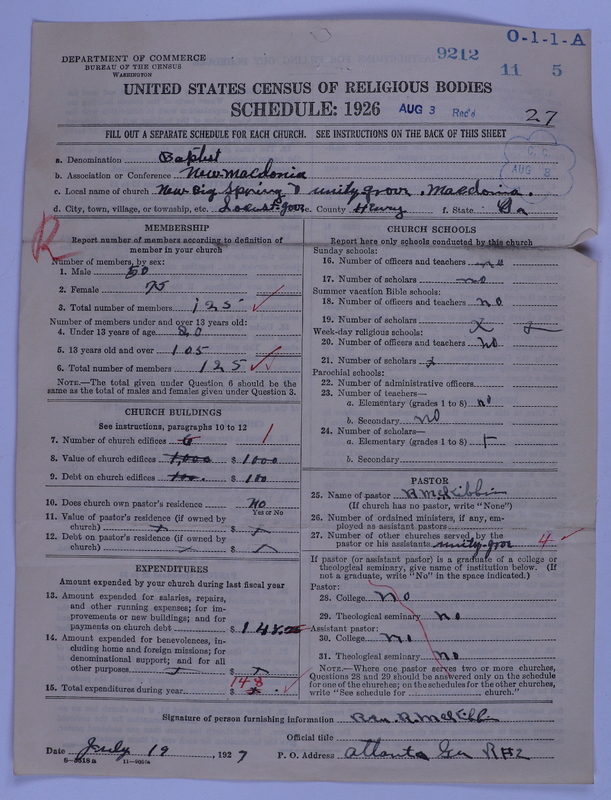 O-1-1-A
9212
11 5
DEPARTMENT OF COMMERCE
BUREAU OF THE CENSUS
WASHINGTON
UNITED STATES CENSUS OF RELIGIOUS BODIES
SCHEDULE: 1926 AUG 3 Rec'd
27
FILL OUT A SEPARATE SCHEDULE FOR EACH CHURCH. SEE INSTRUCTIONS ON THE BACK OF THIS SHEET
a. Denomination Baptist
b. Association or Conference New Macdonia
AUG 8
c. Local name of church New Big Spring unity grove. Macdonia.
d. City, town, village, or township, etc. Locust grove. County Henry f. State Ga
R
MEMBERSHIP
Report number of members according to definition of
member in your church
Number of members, by sex:
1. Male 50
2. Female 75
3. Total number of members 125
Number of members under and over 13 years old:
4. Under 13 years of age 20
5. 13 years old and over 105
6. Total number of members 125
NOTE.—The total given under Question 6 should be the
same as the total of males and females given under Question 3.
CHURCH BUILDINGS
See instructions, paragraphs 10 to 12
7. Number of church edifices 1
8. Value of church edifices 1,000 $ 1000
9. Debt on church edifices 100. $ 100
10. Does church own pastor's residence No
Yes or No
11. Value of pastor's residence (if owned by
church) $
12. Debt on pastor's residence (if owned by
church) $
EXPENDITURES
Amount expended by your church during last fiscal year
13. Amount expended for salaries, repairs,
and other running expenses; for im-
provements or new buildings; and for
payments on church debt $ 148.
14. Amount expended for benevolences, in-
cluding home and foreign missions; for
denominational support; and for all
other purposes $
148
15. Total expenditures during year $
CHURCH SCHOOLS
Report here only schools conducted by this church
Sunday schools:
16. Number of officers and teachers no
17. Number of scholars no
Summer vacation Bible schools:
18. Number of officers and teachers no
19. Number of scholars x
Week-day religious schools:
20. Number of officers and teachers No
21. Number of scholars x
Parochial schools:
22. Number of administrative officers
23. Number of teachers—
a. Elementary (grades 1 to 8) no
b. Secondary no
24. Number of scholars—
a. Elementary (grades 1 to 8)
b. Secondary
PASTOR
25. Name of pastor R McKibbin
(If church has no pastor, write "None")
26. Number of ordained ministers, if any, em-
ployed as assistant pastors
27. Number of other churches served by the
pastor or his assistants unity-grov 4
If pastor (or assistant pastor) is a graduate of a college or
theological seminary, give name of institution below. (If
not a graduate, write "No" in the space indicated.)
Pastor:
28. College no
29. Theological seminary no
Assistant pastor:
30. College no
31. Theological seminary no
NOTE.—Where one pastor serves two or more churches,
Questions 28 and 29 should be answered only on the schedule
for one of the churches; on the schedules for the other churches,
write "See schedule for church."
Signature of person furnishing information Rev. R. McKibbin
Official title
Date July 19, 1927 P. O. Address Atlanta Ga R#2